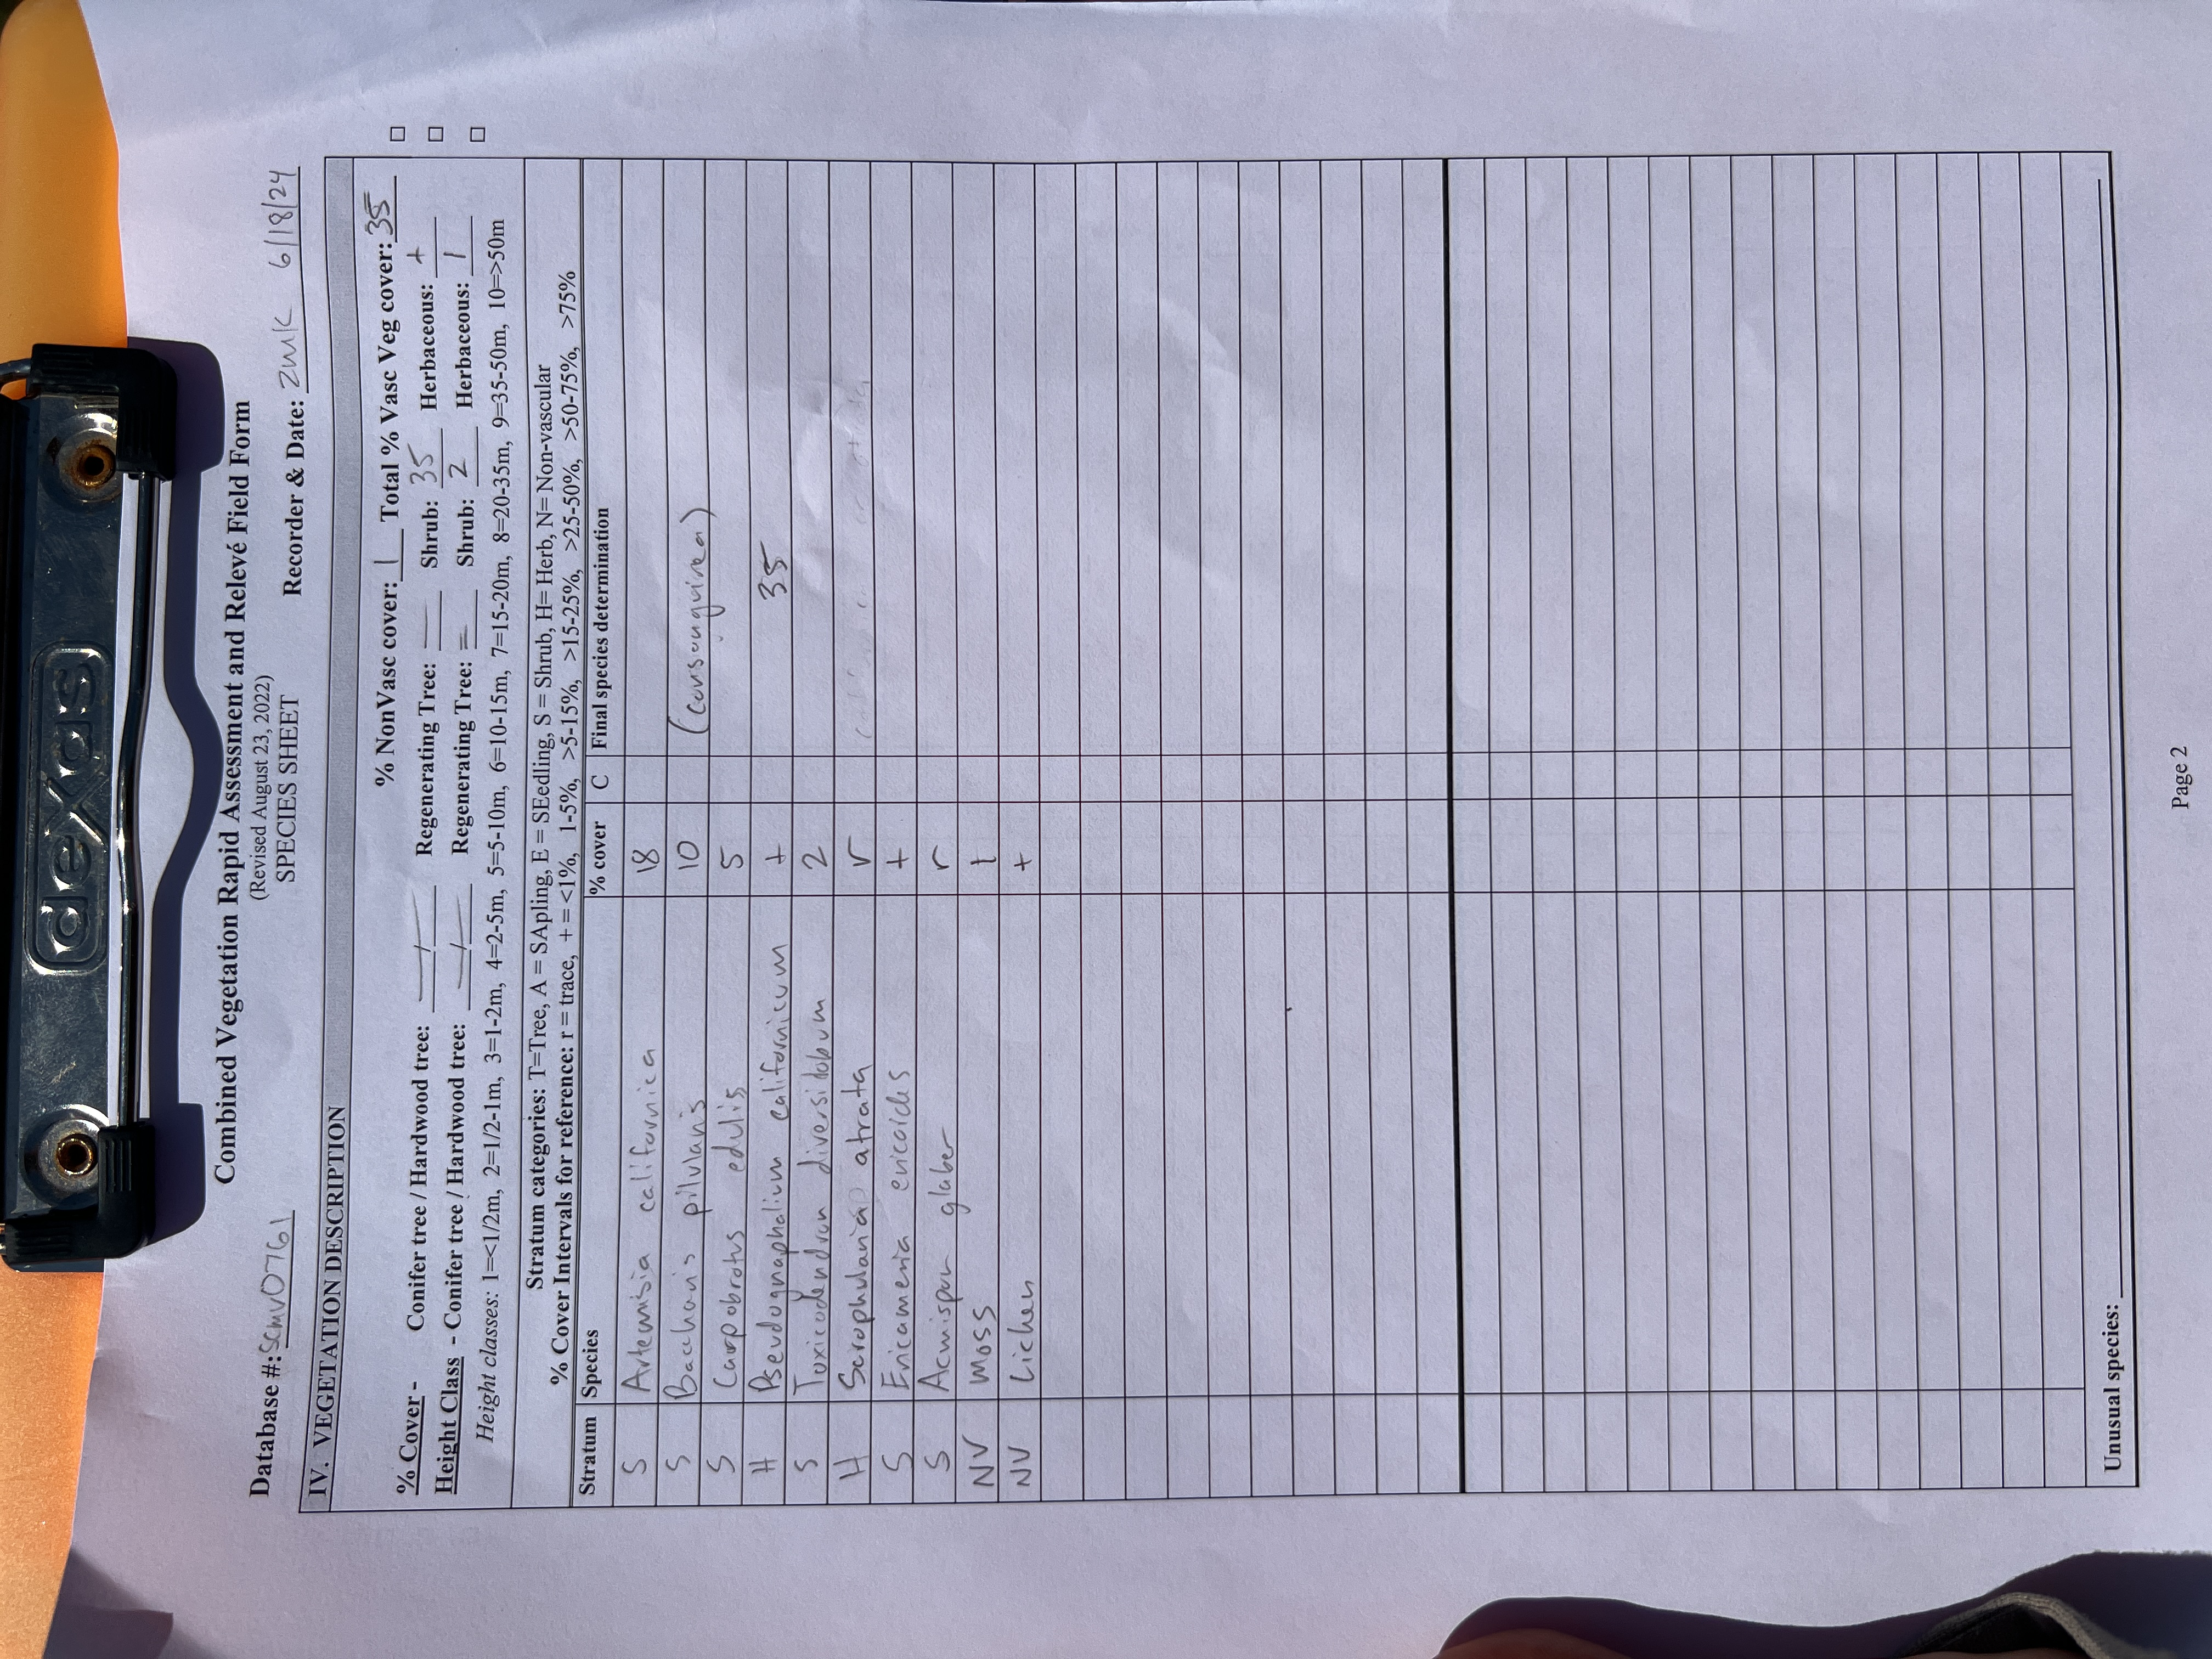 dexas
Combined Vegetation Rapid Assessment and Relevé Field Form
(Revised August 23, 2022)
SPECIES SHEET
Database #: SCMV0761 Recorder & Date: ZMK 6/18/24
IV. VEGETATION DESCRIPTION
% NonVasc cover: 1 Total % Vasc Veg cover: 35 □
% Cover - Conifer tree / Hardwood tree: — / — Regenerating Tree: — Shrub: 35 Herbaceous: + □
Height Class - Conifer tree / Hardwood tree: — / — Regenerating Tree: — Shrub: 2 Herbaceous: 1 □
Height classes: 1=<1/2m, 2=1/2-1m, 3=1-2m, 4=2-5m, 5=5-10m, 6=10-15m, 7=15-20m, 8=20-35m, 9=35-50m, 10=>50m
Stratum categories: T=Tree, A = SApling, E = SEedling, S = Shrub, H= Herb, N= Non-vascular
% Cover Intervals for reference: r = trace, + = <1%, 1-5%, >5-15%, >15-25%, >25-50%, >50-75%, >75%
Stratum Species % cover C Final species determination
S Artemisia californica 18
S Baccharis pilularis 10 (consanguinea)
S Carpobrotus edulis 5
H Pseudognaphalium californicum + 35
S Toxicodendron diversilobum 2
H Scrophularia atrata r
S Ericameria ericoides +
S Acmispon glaber r
NV Moss 1
NV Lichen +
Unusual species:
Page 2